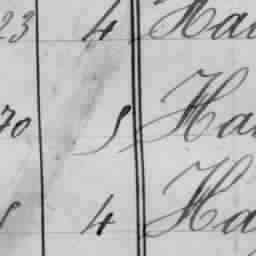 23 4 Ha
70 5 Ha
4 Ha